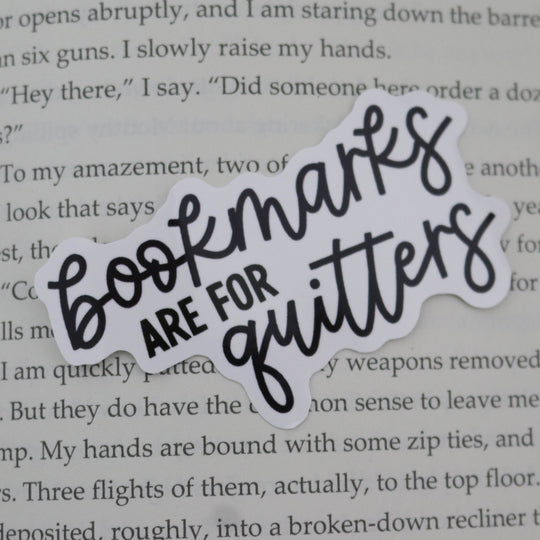 or opens abruptly, and I am staring down the barre
n six guns. I slowly raise my hands.
"Hey there," I say. "Did someone here order a doz
s?"
To my amazement, two of e anoth
look that says yea
est, th v for
"Co for
lls m
I am quickly patted y weapons removed
. But they do have the common sense to leave me
mp. My hands are bound with some zip ties, and
s. Three flights of them, actually, to the top floor.
deposited, roughly, into a broken-down recliner t
bookmarks
ARE FOR
quitters